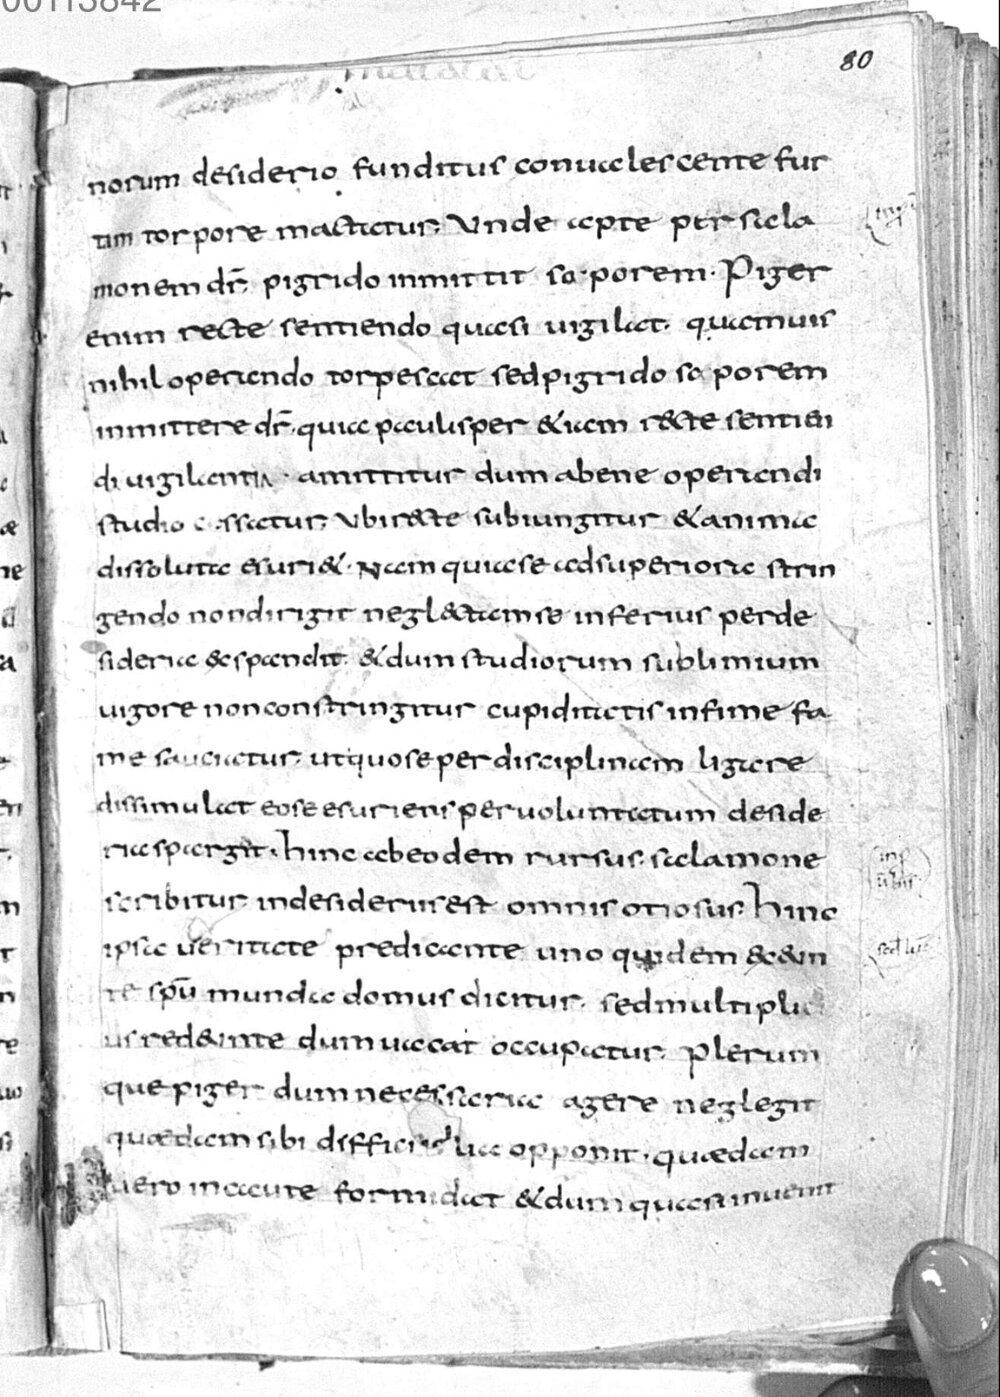 00113842
80
norum desiderio funditus conualescente fur
tim torpore mactatur; Unde apte per sala
monem dr̄. pigrido inmittit soporem. Piger
enim recte sentiendo quasi uigilat. quamuis
nihil operando torpescat sed pigrido soporem
inmittere dr̄. quia paulisper &iam r&te sentien
di uigilantia. amittitur dum abene operandi
studio cessatur; Ubi r&te subiungitur &anima
dissoluta esuri&. Nam quia se ad superiora strin
gendo non dirigit negl&tam se inferius per de
sideria expandit. &dum studiorum sublimium
uigore non constringitur cupiditatis infime fa
me sauciatur; ut quo se per disciplinam ligare
dissimulat eo se esuriens per uoluntatum deside
ria spargit. hinc ab eodem rursus salamone
scribitur; in desideriis est omnis otiosus. hinc
ipsa ueritate predicante uno quidem exeun
te spū munda domus dicitur. sed multiplic
us red&inte dum uacat occupatur; Plerum
que piger dum necessaria agere neglegit
quædam sibi difficilia opponit. quædam
uero incaute formidat &dum quasi inuenit